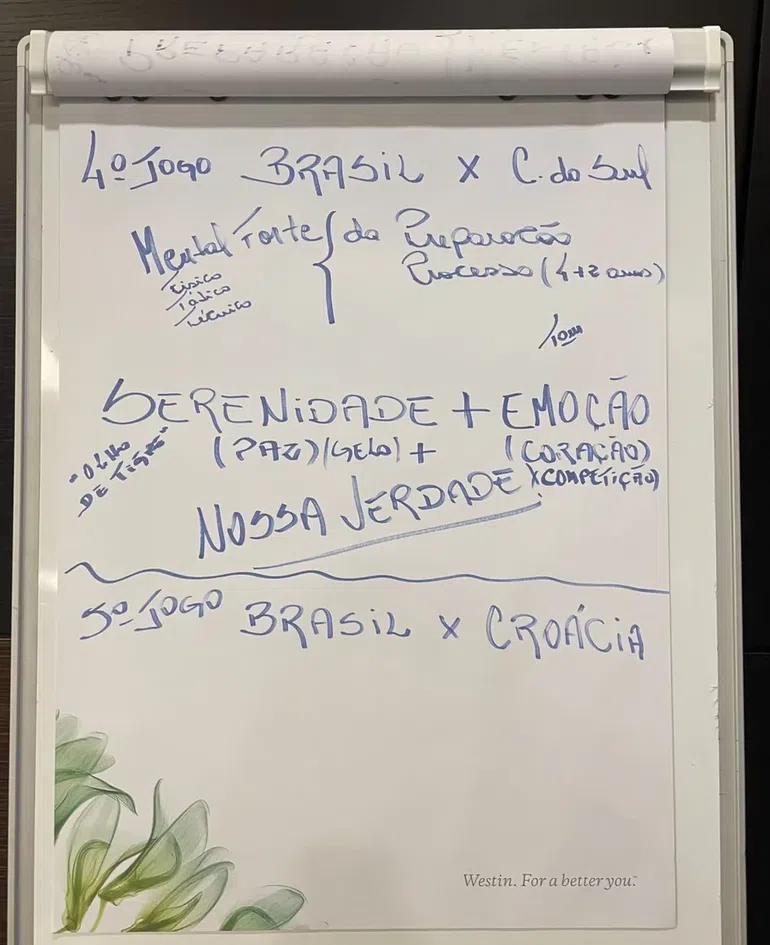 4º JOGO BRASIL X C. do Sul
Mental Forte { da Preparação
Físico
Tático
Técnico
Processo (4+2 anos)
SERENIDADE + EMOÇÃO
(PAZ) (GELO) + (CORAÇÃO)
"OLHO
DE TIGRE"
X COMPETIÇÃO)
NOSSA VERDADE!
5º JOGO BRASIL X CROÁCIA
Westin. For a better you.™